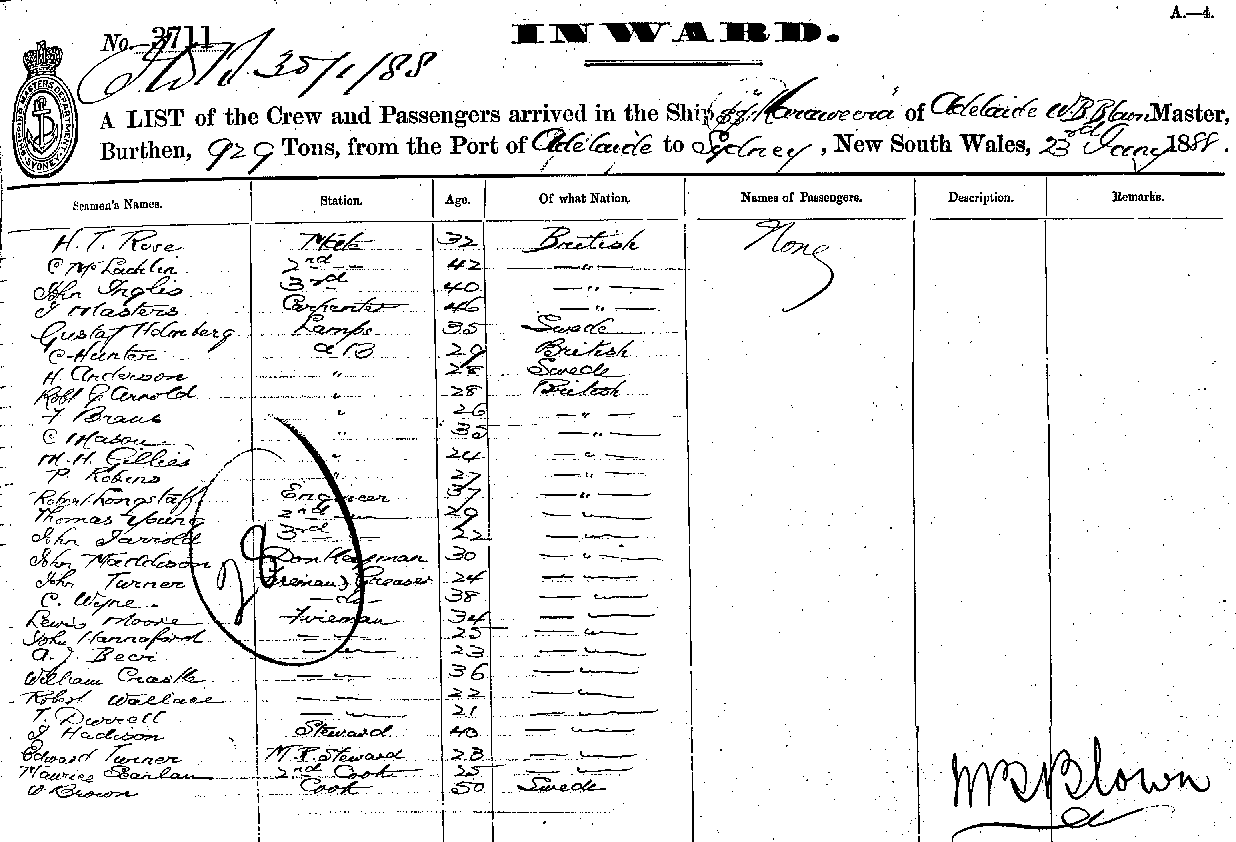 A.—4.
No. 3711
INWARD.
30/1/88
A LIST of the Crew and Passengers arrived in the Ship of Adelaide W B Blown Master,
Burthen, 929 Tons, from the Port of Adelaide to Sydney, New South Wales, 23rd Jany 1888.
Seamen's Names. Station. Age. Of what Nation. Names of Passengers. Description. Remarks.
H. T. Rose Mate 32 British None
C McLachlin 2nd 42 — " —
John Inglis 3rd 40 — " —
J Masters Carpenter 46 — " —
Gustaf Holmberg Lamps 35 Swede
C Hunter AB 29 British
H. Anderson " 28 Swede
Robt G Arnold " 28 British
F Braus " 26 — " —
C Mason " 35 — " —
M. H. Gillies " 24 — " —
P. Robins " 27 — " —
Robert Longstaff Engineer 37 — " —
Thomas Young 2nd — " — 29 — " —
John Jarrold 3rd — " — 22 — " —
John Maddison Donkeyman 30 — " —
John Turner Fireman & Greaser 24 — " —
C. Wyne — do — 38 — " —
Lewis Moore Fireman 34 — " —
John Hannaford — " — 25 — " —
A. J. Beer — " — 23 — " —
William Crastle — " — 36 — " —
Robert Wallace — " — 22 — " —
T. Durrell — " — 21 — " —
J Hadison Steward 40 — " —
Edward Turner M. R. Steward 23 — " —
Maurice Scanlan 2nd Cook 25 — " —
W Brown Cook 50 Swede
28
W B Blown